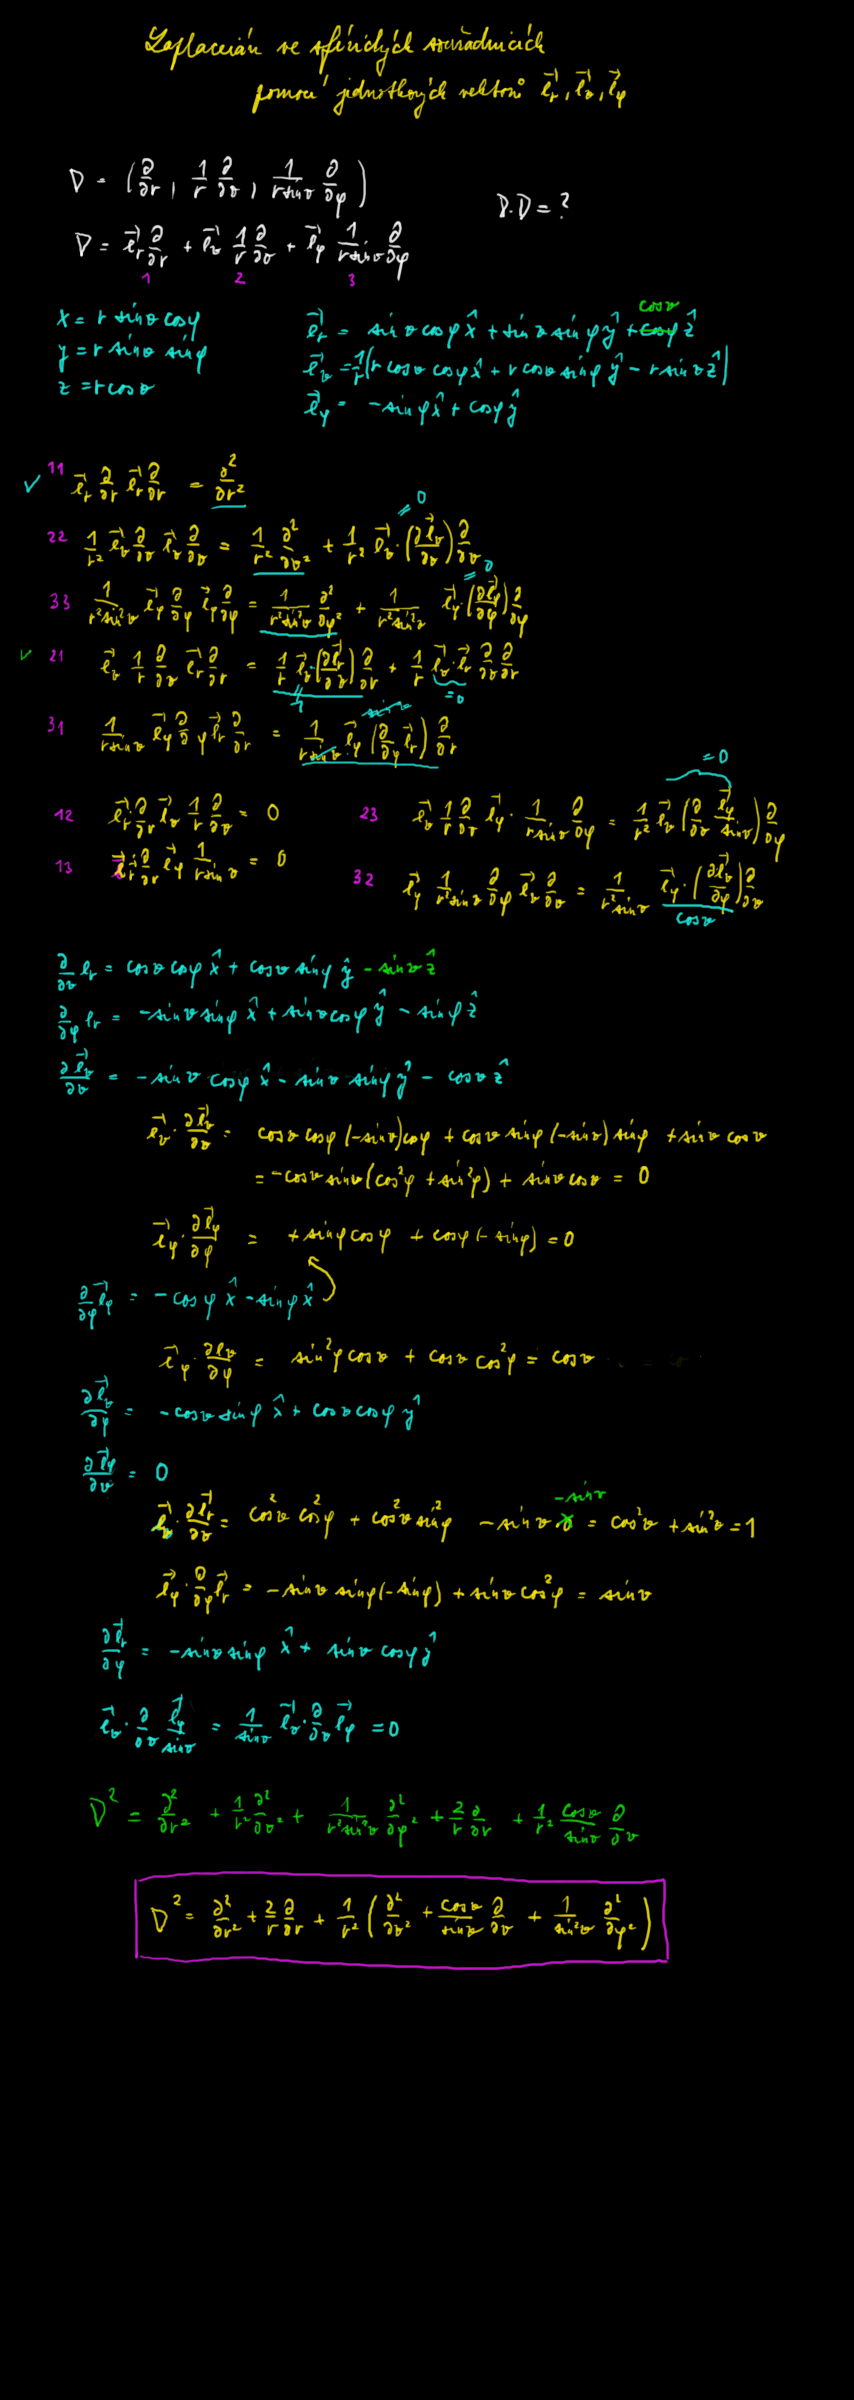 Laplacián ve sférických souřadnicích
pomocí jednotkových vektorů e⃗r, e⃗ϑ, e⃗φ
∇ = (∂/∂r, 1/r ∂/∂ϑ, 1/(r sinϑ) ∂/∂φ)
∇·∇ = ?
∇ = e⃗r ∂/∂r + e⃗ϑ 1/r ∂/∂ϑ + e⃗φ 1/(r sinϑ) ∂/∂φ
1 2 3
x = r sinϑ cosφ
y = r sinϑ sinφ
z = r cosϑ
cosϑ
e⃗r = sinϑ cosφ x̂ + sinϑ sinφ ŷ + cosφ ẑ
e⃗ϑ = 1/r (r cosϑ cosφ x̂ + r cosϑ sinφ ŷ − r sinϑ ẑ)
e⃗φ = −sinφ x̂ + cosφ ŷ
✓ 11 e⃗r ∂/∂r e⃗r ∂/∂r = ∂²/∂r²
= 0
22 1/r² e⃗ϑ ∂/∂ϑ e⃗ϑ ∂/∂ϑ = 1/r² ∂²/∂ϑ² + 1/r² e⃗ϑ · (∂e⃗ϑ/∂ϑ) ∂/∂ϑ
= 0
33 1/(r² sin²ϑ) e⃗φ ∂/∂φ e⃗φ ∂/∂φ = 1/(r² sin²ϑ) ∂²/∂φ² + 1/(r² sin²ϑ) e⃗φ · (∂e⃗φ/∂φ) ∂/∂φ
✓ 21 e⃗ϑ 1/r ∂/∂ϑ e⃗r ∂/∂r = 1/r e⃗ϑ · (∂e⃗r/∂ϑ) ∂/∂r + 1/r e⃗ϑ · e⃗r ∂/∂ϑ ∂/∂r
= 0
sinϑ
31 1/(r sinϑ) e⃗φ ∂/∂φ e⃗r ∂/∂r = 1/(r sinϑ) e⃗φ (∂/∂φ e⃗r) ∂/∂r
12 e⃗r ∂/∂r e⃗ϑ 1/r ∂/∂ϑ = 0
13 e⃗r ∂/∂r e⃗φ 1/(r sinϑ) = 0
= 0
23 e⃗ϑ 1/r ∂/∂ϑ e⃗φ · 1/(r sinϑ) ∂/∂φ = 1/r² e⃗ϑ (∂/∂ϑ e⃗φ/sinϑ) ∂/∂φ
32 e⃗φ 1/(r² sinϑ) ∂/∂φ e⃗ϑ ∂/∂ϑ = 1/(r² sinϑ) e⃗φ · (∂e⃗ϑ/∂φ) ∂/∂ϑ
cosϑ
∂/∂ϑ er = cosϑ cosφ x̂ + cosϑ sinφ ŷ − sinϑ ẑ
∂/∂φ er = −sinϑ sinφ x̂ + sinϑ cosφ ŷ − sinφ ẑ
∂e⃗ϑ/∂ϑ = −sinϑ cosφ x̂ − sinϑ sinφ ŷ − cosϑ ẑ
e⃗ϑ · ∂e⃗ϑ/∂ϑ = cosϑ cosφ (−sinϑ) cosφ + cosϑ sinφ (−sinϑ) sinφ + sinϑ cosϑ
= −cosϑ sinϑ (cos²φ + sin²φ) + sinϑ cosϑ = 0
e⃗φ · ∂e⃗φ/∂φ = + sinφ cosφ + cosφ (−sinφ) = 0
∂/∂φ e⃗φ = −cosφ x̂ − sinφ x̂
e⃗φ · ∂eϑ/∂φ = sin²φ cosϑ + cosϑ cos²φ = cosϑ
∂e⃗ϑ/∂φ = −cosϑ sinφ x̂ + cosϑ cosφ ŷ
∂e⃗φ/∂ϑ = 0
−sinϑ
e⃗ϑ · ∂e⃗r/∂ϑ = cos²ϑ cos²φ + cos²ϑ sin²φ − sinϑ · 0 = cos²ϑ + sin²ϑ = 1
e⃗φ · ∂/∂φ e⃗r = −sinϑ sinφ (−sinφ) + sinϑ cos²φ = sinϑ
∂e⃗r/∂φ = −sinϑ sinφ x̂ + sinϑ cosφ ŷ
e⃗ϑ · ∂/∂ϑ e⃗φ/sinϑ = 1/sinϑ e⃗ϑ · ∂/∂ϑ e⃗φ = 0
∇² = ∂²/∂r² + 1/r² ∂²/∂ϑ² + 1/(r² sin²ϑ) ∂²/∂φ² + 2/r ∂/∂r + 1/r² cosϑ/sinϑ ∂/∂ϑ
∇² = ∂²/∂r² + 2/r ∂/∂r + 1/r² (∂²/∂ϑ² + cosϑ/sinϑ ∂/∂ϑ + 1/sin²ϑ ∂²/∂φ²)